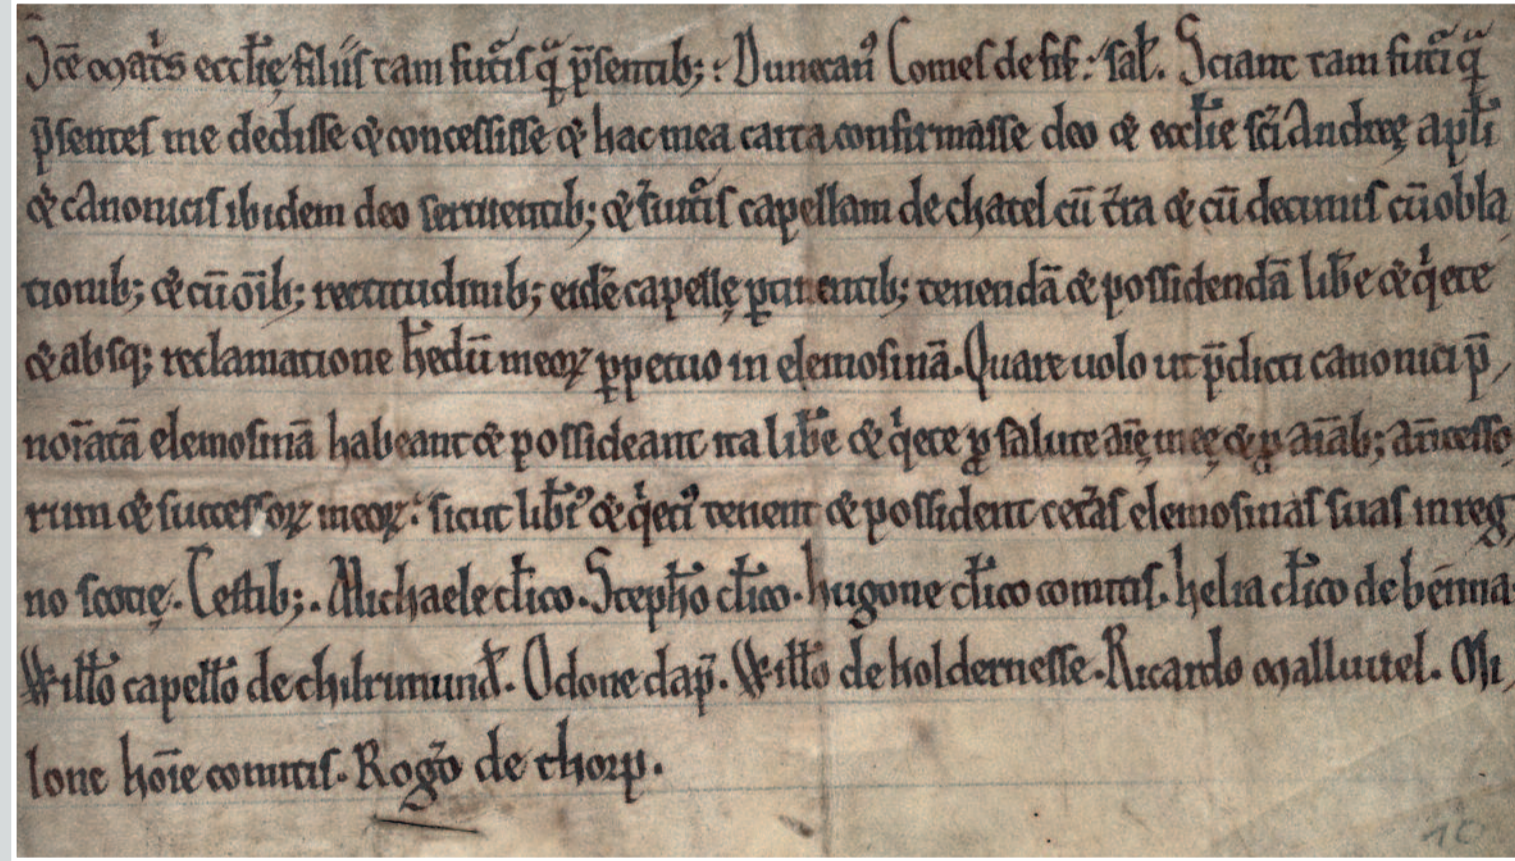 Sc̄e mat̓s eccl̄ię filiis tam fut᷑is qͣ p̄sentib; : Dunecanꝰ Comes de fif : sal̄. Sciant tam fut᷑i qͣ
p̄sentes me dedisse & concessisse & hac mea carta confirmasse deo & eccl̄ie sc̄i Andreę apl̄i
& canonicis ibidem deo seruientib; & fut᷑is capellam de chatel cū t̓ra & cū decimis cū obla
tionib; & cū om̄ib; rectitudinib; eidē capellę ꝑtinentib; tenendā & possidendā lib̄e & qͥete
& absq; reclamatione h̓edū meoꝝ ꝑpetuo in elemosinā. Quare uolo ut p̄dicti canonici p̄,
noīatā elemosinā habeant & possideant ita lib̄e & qͥete ꝓ salute aīę meę & ꝓ aīab; an̄cesso,
rum & successoꝝ meoꝝ : sicut lib̓iꝰ & qͥetiꝰ tenent & possident cet̓as elemosinas suas in reg,
no scotię. Testib; . Michaele cl̄ico. Steph̄o cl̄ico. hugone cl̄ico comitis. helia cl̄ico de
Will̄o capell̄o de chilrimund̄. Odone dap̄. Will̄o de holdernesse. Ricardo malluuel. Mi,
lone hoīe comitis. Rog̓o de thorp.
10